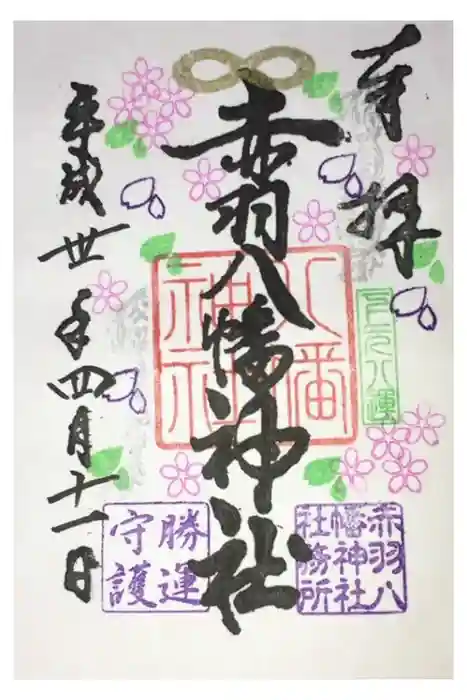 奉拝
赤羽八幡神社
平成卅年四月十一日
八幡
神社
赤羽八
幡神社
社務所
勝運
守護